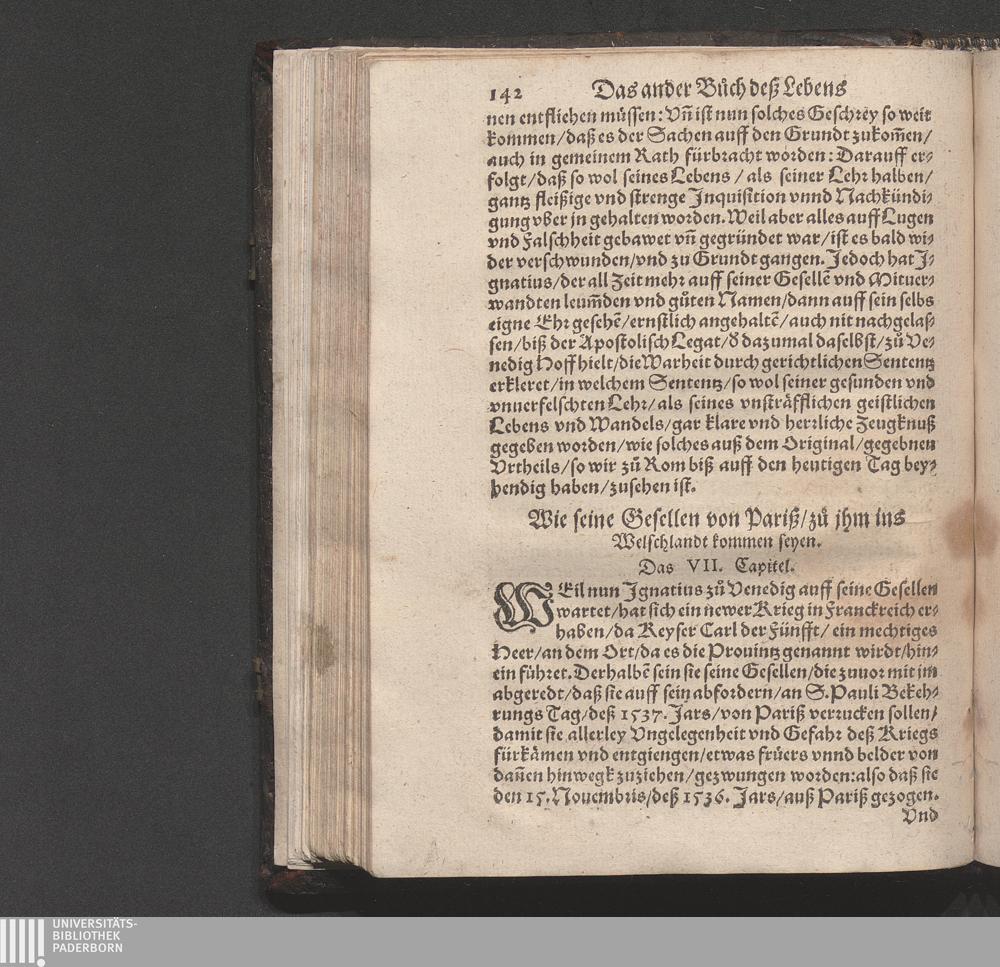 142 Das ander Bůch deß Lebens
nen entfliehen müssen: Vñ ist nun solches Geschrey so weit
kommen/daß es der Sachen auff den Grundt zukom̃en/
auch in gemeinem Rath fürbracht worden: Darauff er-
folgt/daß so wol seines Lebens / als seiner Lehr halben/
gantz fleißige vnd strenge Inquisition vnnd Nachkündi-
gung vber jn gehalten worden. Weil aber alles auff Lugen
vnd Falschheit gebawet vñ gegründet war/ist es bald wi-
der verschwunden/vnd zu Grundt gangen. Jedoch hat J-
gnatius/der all Zeit mehr auff seiner Gesellẽ vnd Mituer-
wandten leum̃den vnd gůten Namen/dann auff sein selbs
eigne Ehr gesehẽ/ernstlich angehaltẽ/auch nit nachgelaß-
sen/biß der Apostolisch Legat/ď dazumal daselbst/zů Ve-
nedig Hoff hielt/die Warheit durch gerichtlichen Sententz
erkleret/in welchem Sententz/so wol seiner gesunden vnd
vnuerfelschten Lehr/als seines vnsträfflichen geistlichen
Lebens vnd Wandels/gar klare vnd herrliche Zeugknuß
gegeben worden/wie solches auß dem Original/gegebnen
Vrtheils/so wir zů Rom biß auff den heutigen Tag bey-
hendig haben/zusehen ist.
Wie seine Gesellen von Pariß/zů jhm ins
Welschlandt kommen seyen.
Das VII. Capitel.
WEil nun Ignatius zů Venedig auff seine Gesellen
wartet/hat sich ein newer Krieg in Franckreich er-
haben/da Keyser Carl der Fünfft/ ein mechtiges
Heer/an dem Ort/da es die Prouintz genannt wirdt/hin-
ein führet. Derhalbẽ sein sie seine Gesellen/die zuuor mit jm
abgeredt/daß sie auff sein abfordern/an S. Pauli Bekeh-
rungs Tag/deß 1537. Jars/von Pariß verrucken sollen/
damit sie allerley Vngelegenheit vnd Gefahr deß Kriegs
fürkämen vnd entgiengen/etwas früers vnnd belder von
dañen hinwegk zuziehen/gezwungen worden:also daß sie
den 15. Nouembris/deß 1536. Jars/auß Pariß gezogen.
Vnd
UNIVERSITÄTS-
BIBLIOTHEK
PADERBORN